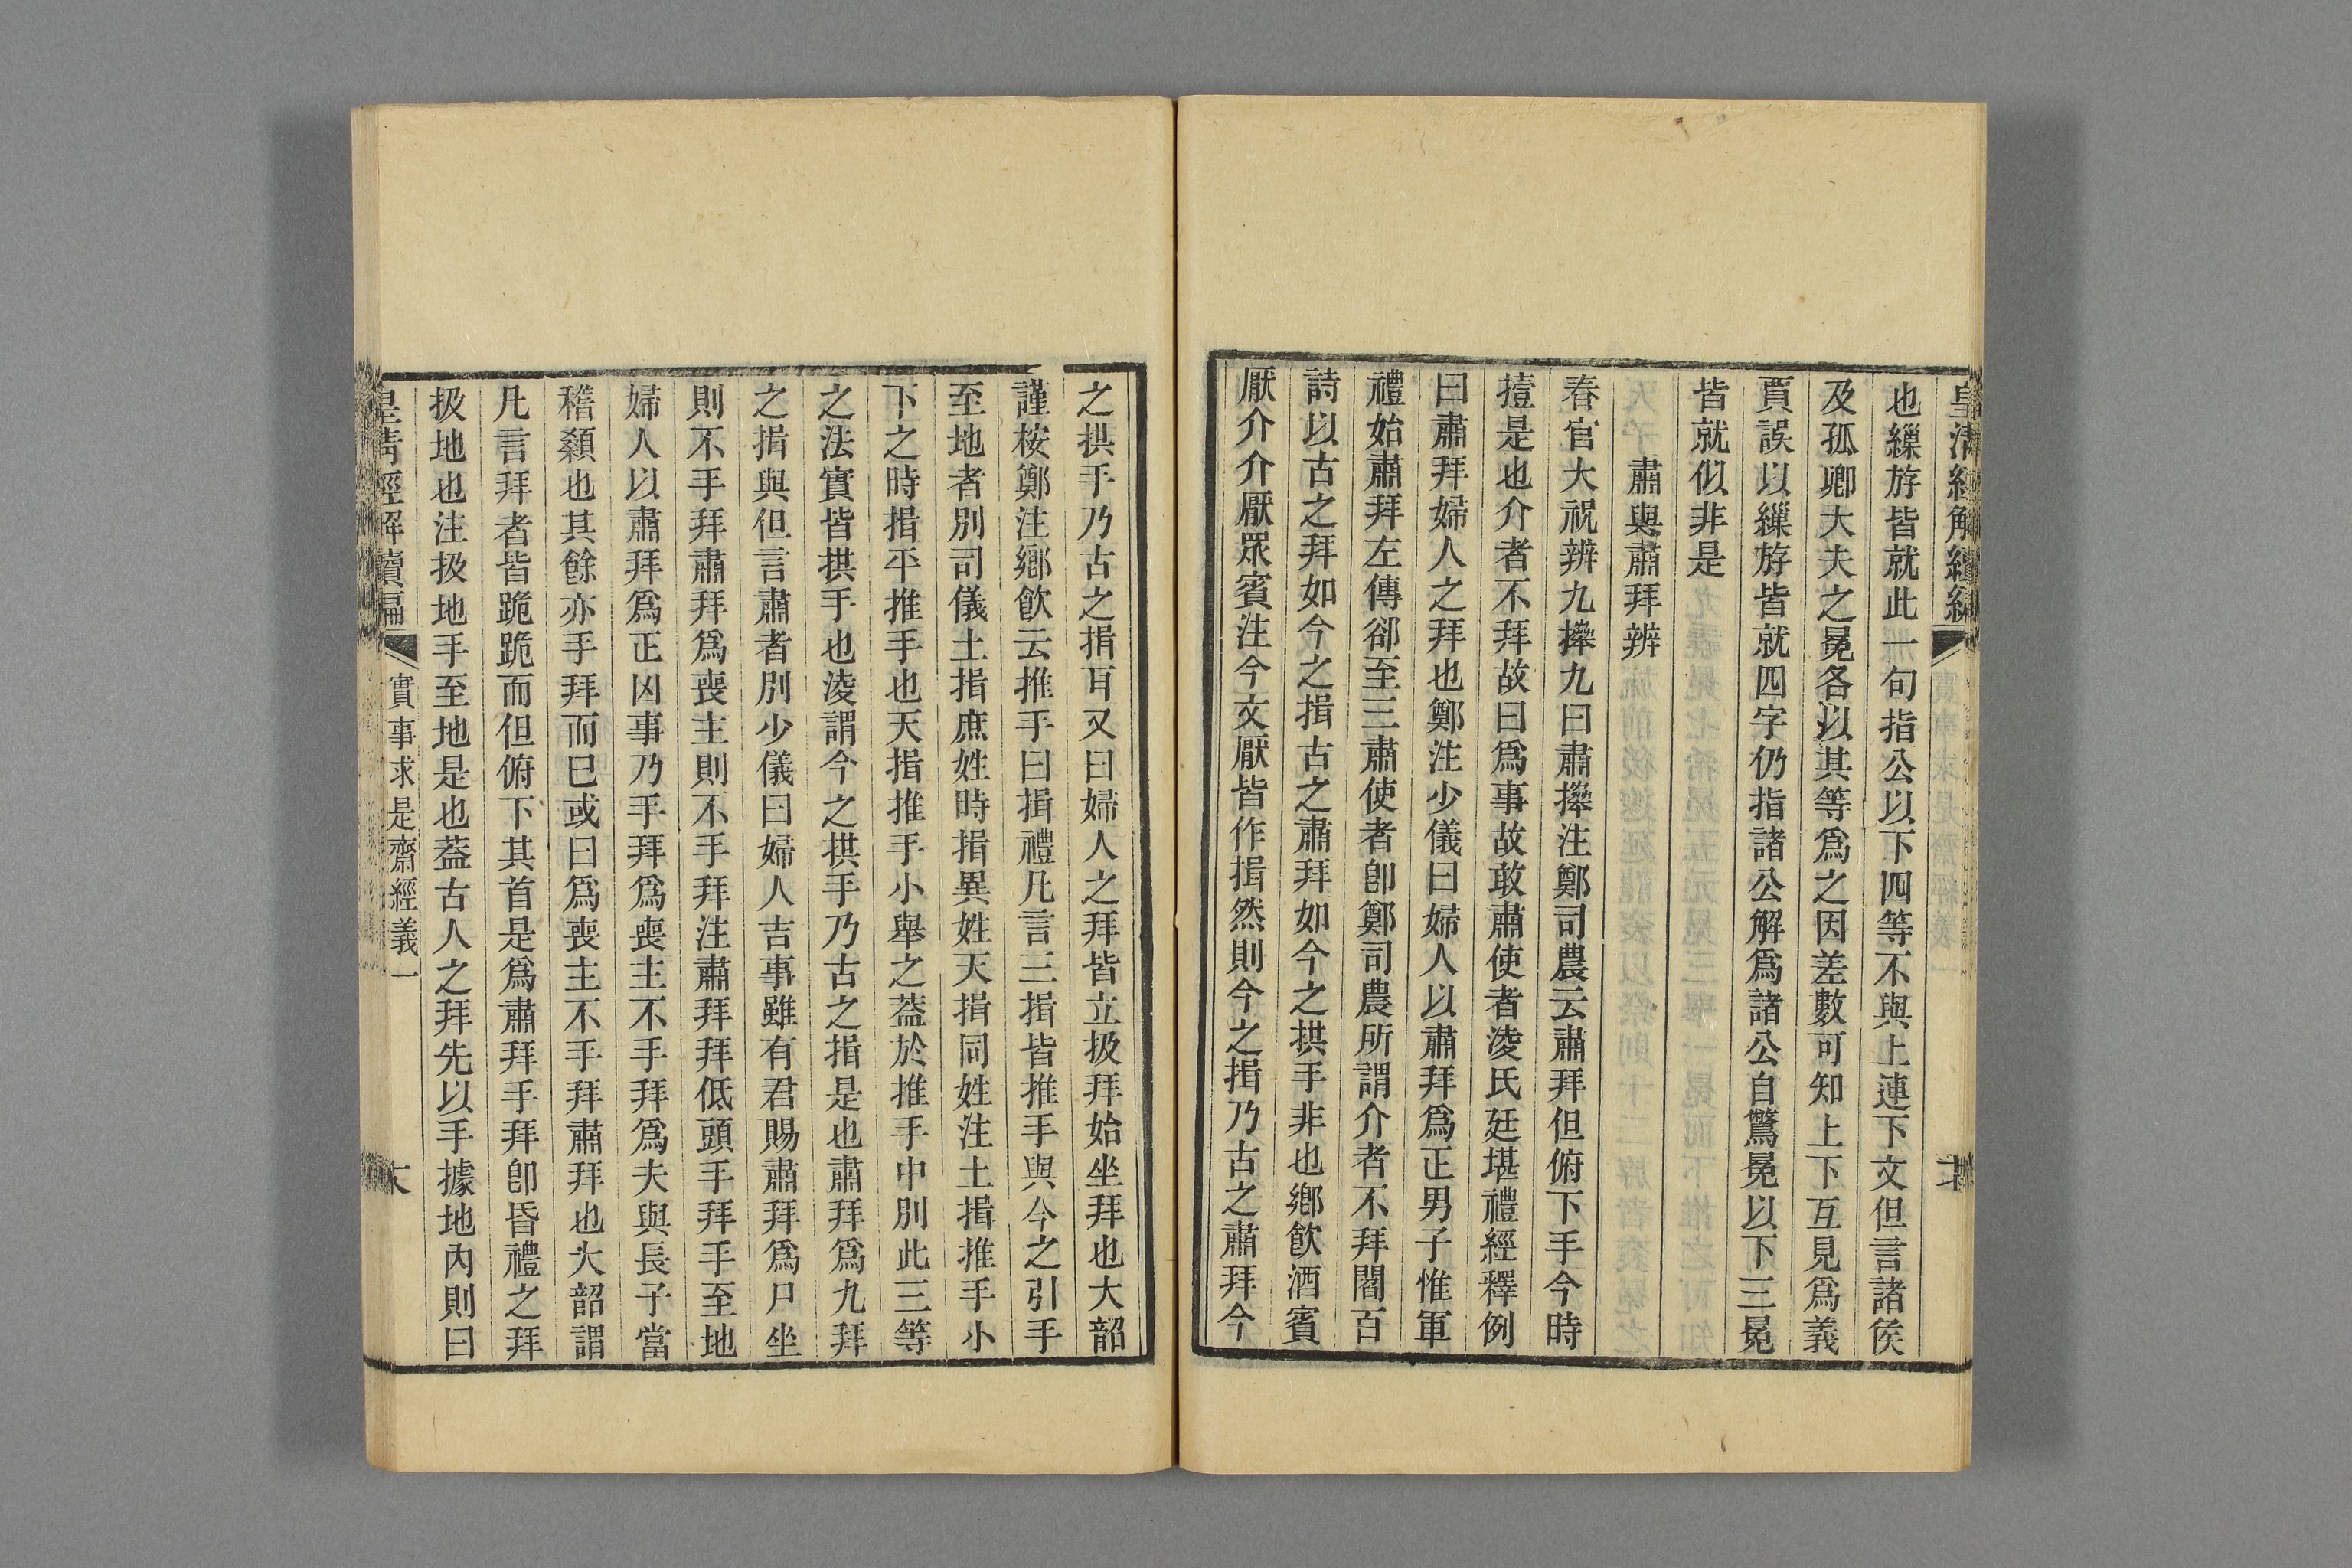 皇清經解續編
也繅斿皆就此一句指公以下四等不與上連下文但言諸侯
及孤卿大夫之冕各以其等爲之因差數可知上下互見爲義
賈誤以繅斿皆就四字仍指諸公解爲諸公自驚冕以下三冕
皆就似非是
肅與肅拜辨
春官大祝辨九𢷎九曰肅𢷎注鄭司農云肅拜但俯下手今時
撎是也介者不拜故曰爲事故敢肅使者淩氏廷堪禮經釋例
曰肅拜婦人之拜也鄭注少儀曰婦人以肅拜爲正男子惟軍
禮始肅拜左傳卻至三肅使者卽鄭司農所謂介者不拜閻百
詩以古之拜如今之揖古之肅拜如今之拱手非也鄕飮酒賓
厭介介厭眾賓注今文厭皆作揖然則今之揖乃古之肅拜今
之拱手乃古之揖耳又曰婦人之拜皆立扱拜始坐拜也大韶
謹桉鄭注鄕飮云推手曰揖禮凡言三揖皆推手與今之引手
至地者別司儀土揖庶姓時揖異姓天揖同姓注土揖推手小
下之時揖平推手也天揖推手小舉之葢於推手中別此三等
之法實皆拱手也淩謂今之拱手乃古之揖是也肅拜爲九拜
之揖與但言肅者別少儀曰婦人吉事雖有君賜肅拜爲尸坐
則不手拜肅拜爲喪主則不手拜注肅拜拜低頭手拜手至地
婦人以肅拜爲正凶事乃手拜爲喪主不手拜爲夫與長子當
稽顙也其餘亦手拜而已或曰爲喪主不手拜肅拜也大韶謂
凡言拜者皆跪跪而但俯下其首是爲肅拜手拜卽昏禮之拜
扱地也注扱地手至地是也葢古人之拜先以手據地內則曰
皇清經解續編 實事求是齋經義一